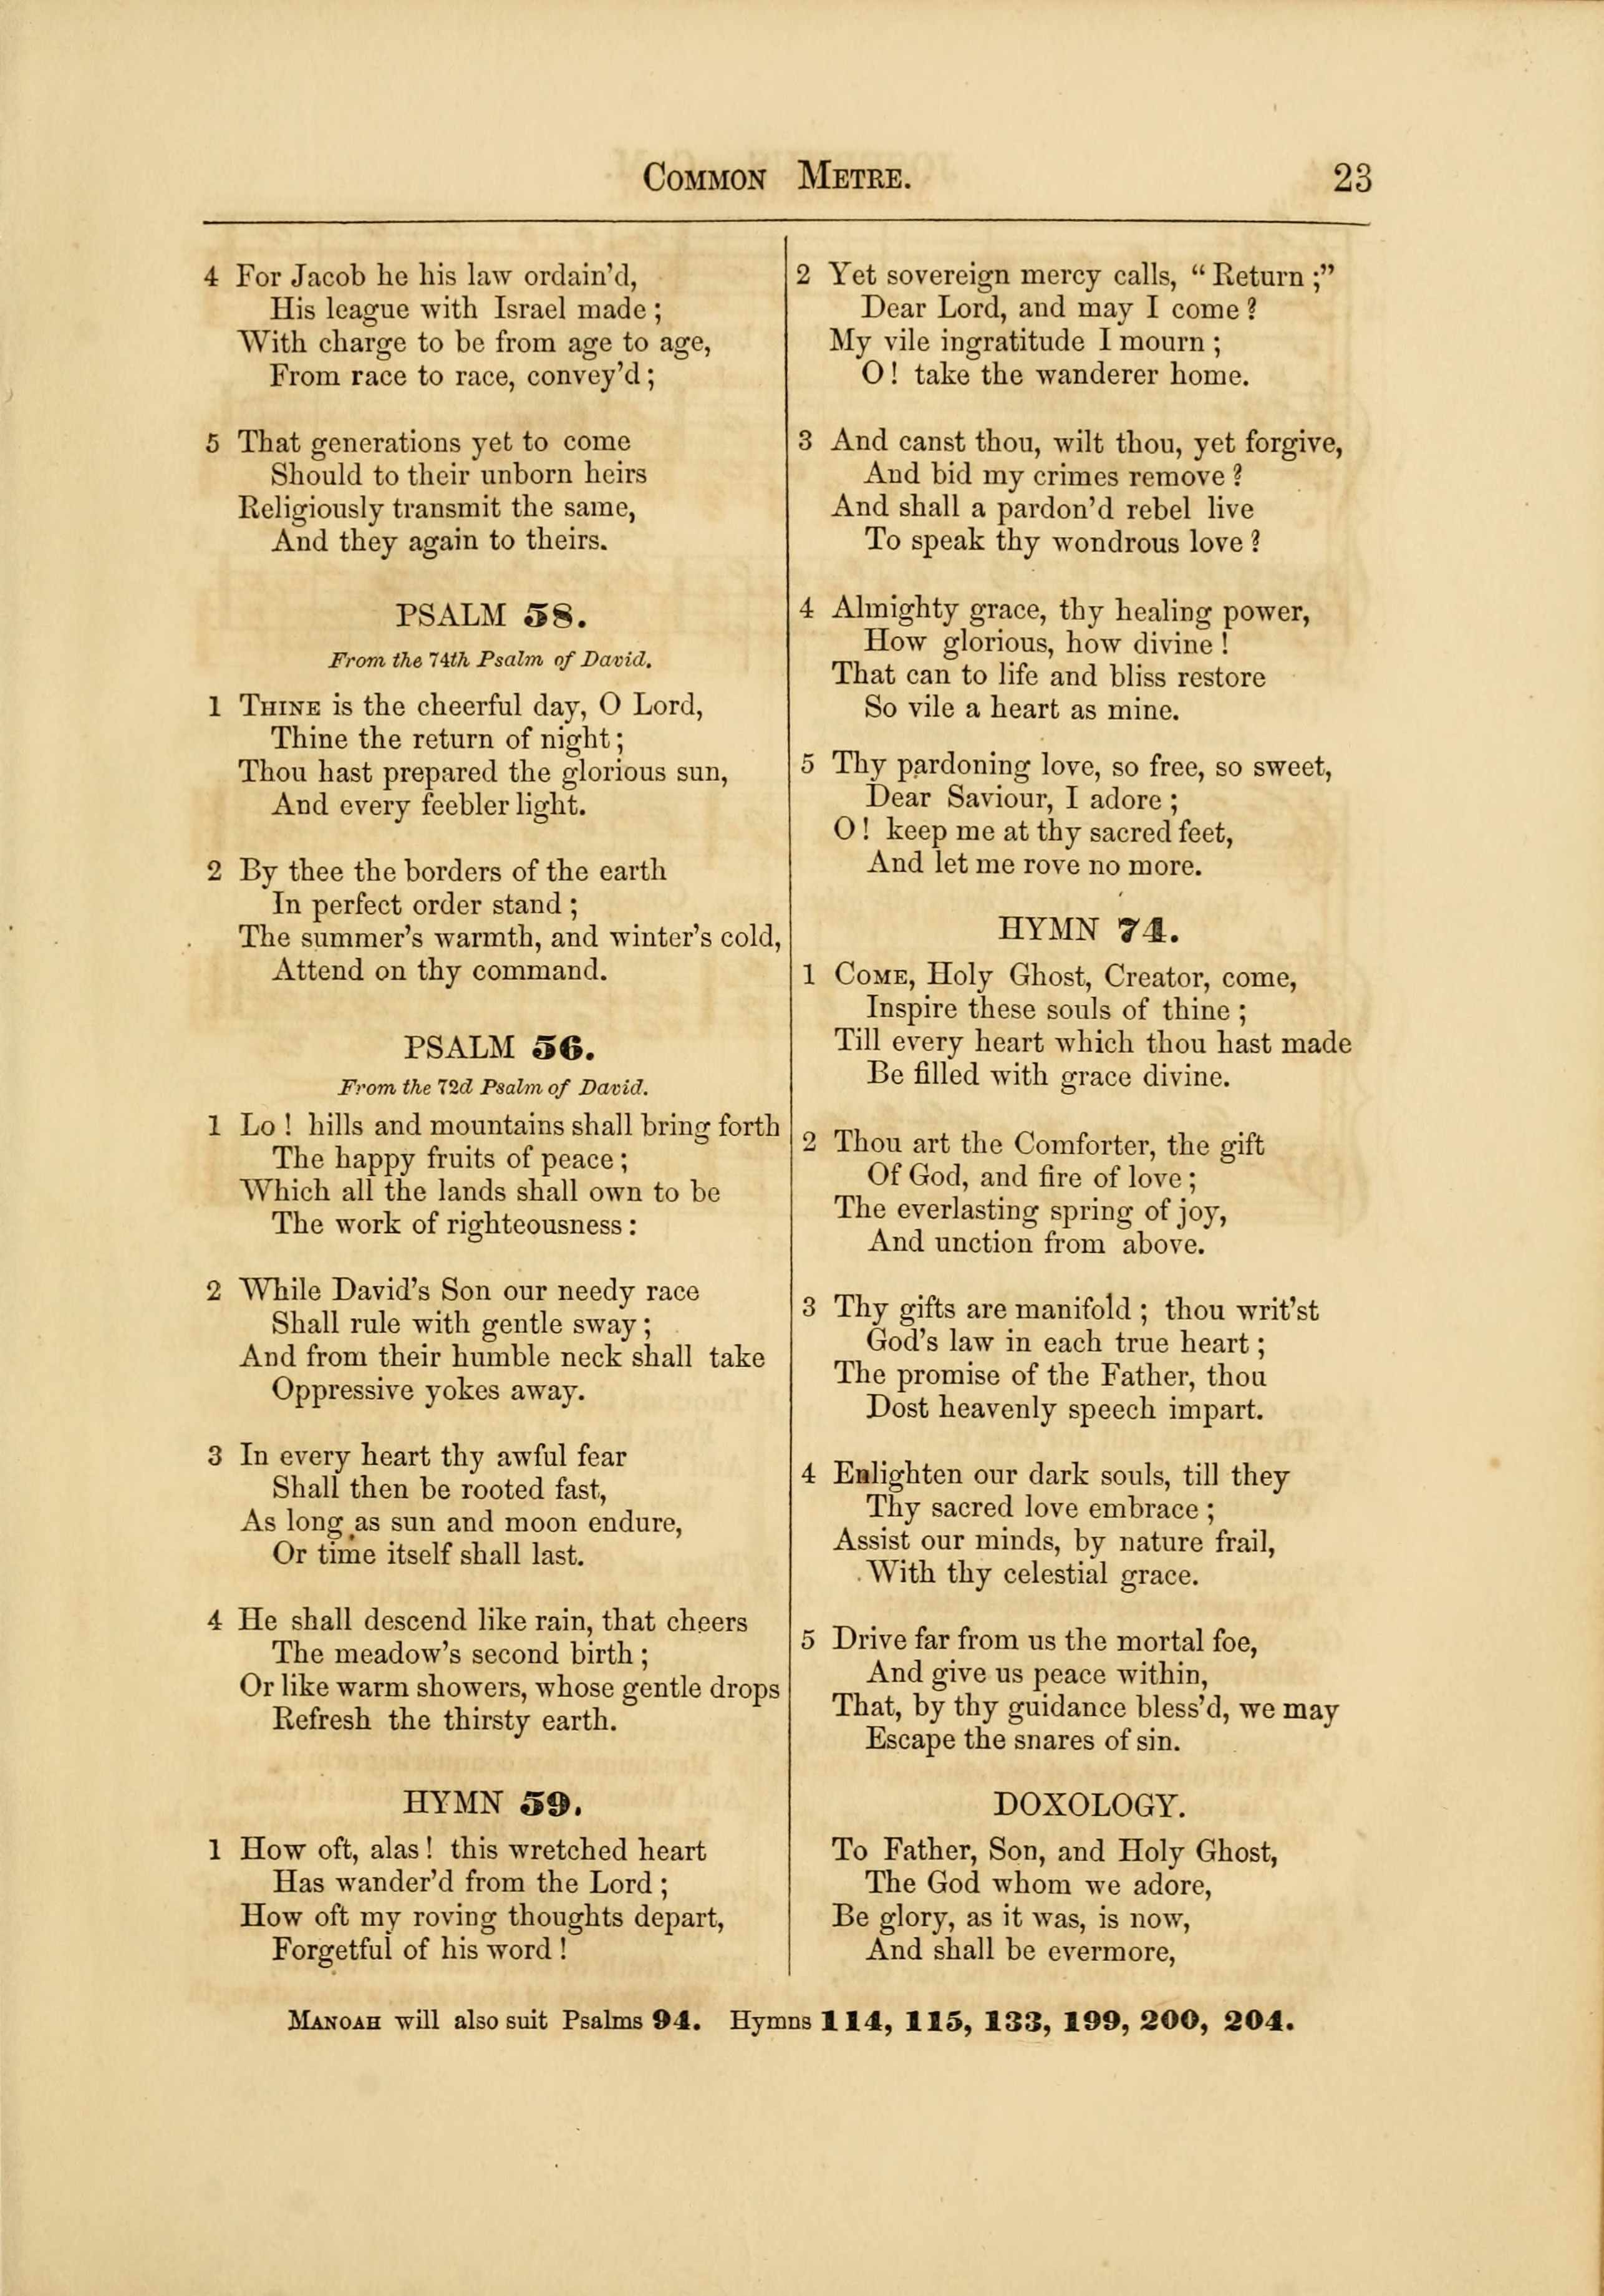 COMMON METRE. 23
4 For Jacob he his law ordain'd,
His league with Israel made ;
With charge to be from age to age,
From race to race, convey'd ;
5 That generations yet to come
Should to their unborn heirs
Religiously transmit the same,
And they again to theirs.
PSALM 58.
From the 74th Psalm of David.
1 THINE is the cheerful day, O Lord,
Thine the return of night ;
Thou hast prepared the glorious sun,
And every feebler light.
2 By thee the borders of the earth
In perfect order stand ;
The summer's warmth, and winter's cold,
Attend on thy command.
PSALM 56.
From the 72d Psalm of David.
1 Lo ! hills and mountains shall bring forth
The happy fruits of peace ;
Which all the lands shall own to be
The work of righteousness :
2 While David's Son our needy race
Shall rule with gentle sway ;
And from their humble neck shall take
Oppressive yokes away.
3 In every heart thy awful fear
Shall then be rooted fast,
As long as sun and moon endure,
Or time itself shall last.
4 He shall descend like rain, that cheers
The meadow's second birth ;
Or like warm showers, whose gentle drops
Refresh the thirsty earth.
HYMN 59.
1 How oft, alas ! this wretched heart
Has wander'd from the Lord ;
How oft my roving thoughts depart,
Forgetful of his word !
2 Yet sovereign mercy calls, " Return ;"
Dear Lord, and may I come ?
My vile ingratitude I mourn ;
O ! take the wanderer home.
3 And canst thou, wilt thou, yet forgive,
And bid my crimes remove ?
And shall a pardon'd rebel live
To speak thy wondrous love ?
4 Almighty grace, thy healing power,
How glorious, how divine !
That can to life and bliss restore
So vile a heart as mine.
5 Thy pardoning love, so free, so sweet,
Dear Saviour, I adore ;
O ! keep me at thy sacred feet,
And let me rove no more.
HYMN 74.
1 COME, Holy Ghost, Creator, come,
Inspire these souls of thine ;
Till every heart which thou hast made
Be filled with grace divine.
2 Thou art the Comforter, the gift
Of God, and fire of love ;
The everlasting spring of joy,
And unction from above.
3 Thy gifts are manifold ; thou writ'st
God's law in each true heart ;
The promise of the Father, thou
Dost heavenly speech impart.
4 Enlighten our dark souls, till they
Thy sacred love embrace ;
Assist our minds, by nature frail,
With thy celestial grace.
5 Drive far from us the mortal foe,
And give us peace within,
That, by thy guidance bless'd, we may
Escape the snares of sin.
DOXOLOGY.
To Father, Son, and Holy Ghost,
The God whom we adore,
Be glory, as it was, is now,
And shall be evermore,
MANOAH will also suit Psalms 94. Hymns 114, 115, 133, 199, 200, 204.